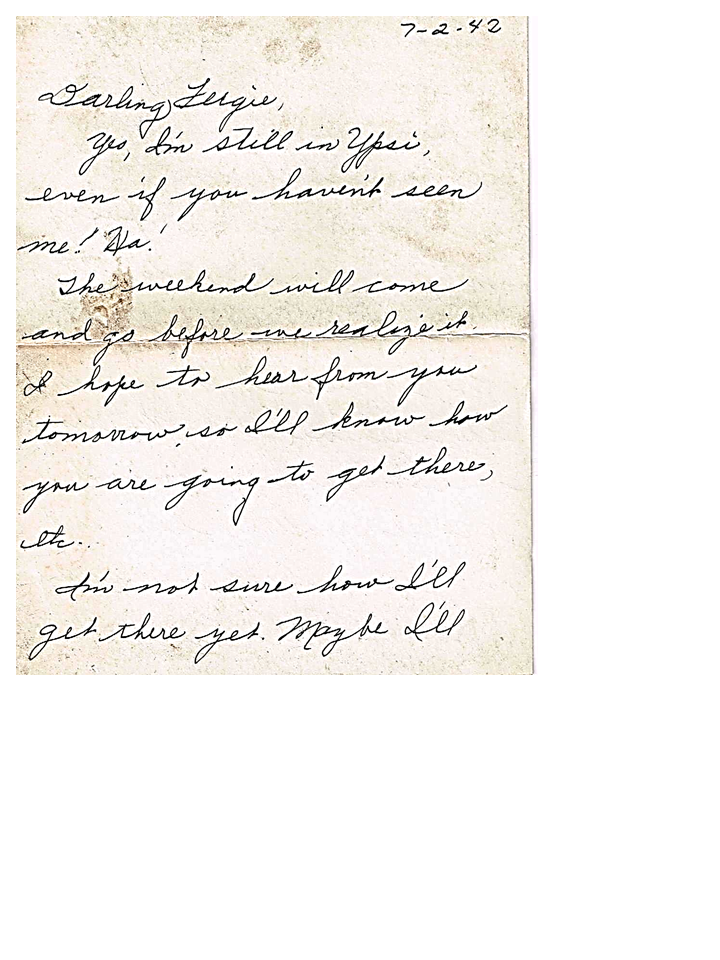 7-2-42
Darling Fergie,
Yes, I'm still in Ypsi,
even if you haven't seen
me! Ha!
The weekend will come
and go before we realize it.
I hope to hear from you
tomorrow, so I'll know how
you are going to get there,
etc..
I'm not sure how I'll
get there yet. Maybe I'll